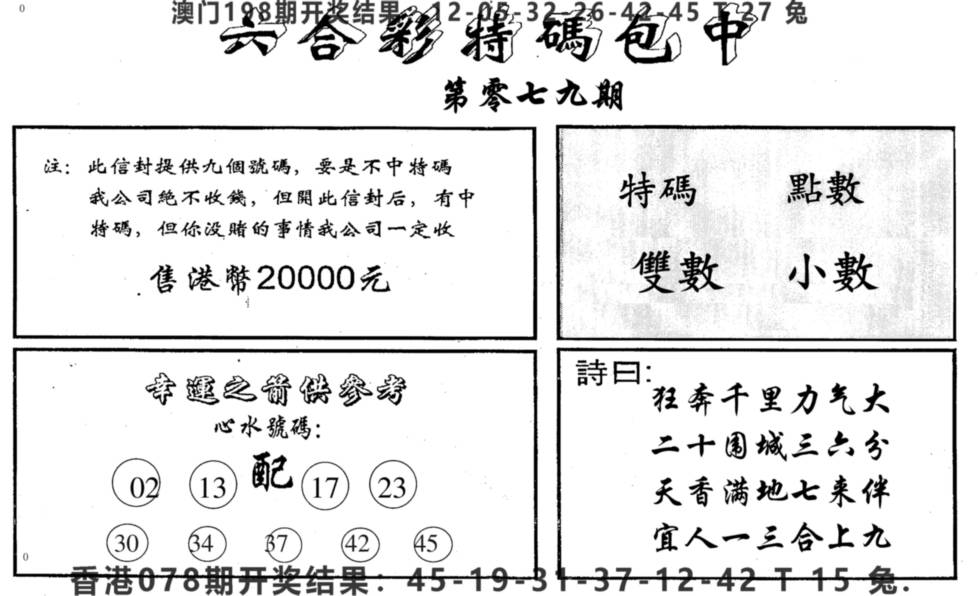 0
澳门198期开奖结果：12-05-32-26-42-45 T 27 兔
六合彩特碼包中
第零七九期
注：此信封提供九個號碼，要是不中特碼
我公司絕不收錢，但開此信封后，有中
特碼，但你没賭的事情我公司一定收
售港幣20000元
特碼 點數
雙數 小數
幸運之箭供參考
心水號碼：
02 13 配 17 23
30 34 37 42 45
詩曰：
狂奔千里力气大
二十围城三六分
天香满地七来伴
宜人一三合上九
0
香港078期开奖结果：45-19-31-37-12-42 T 15 兔.